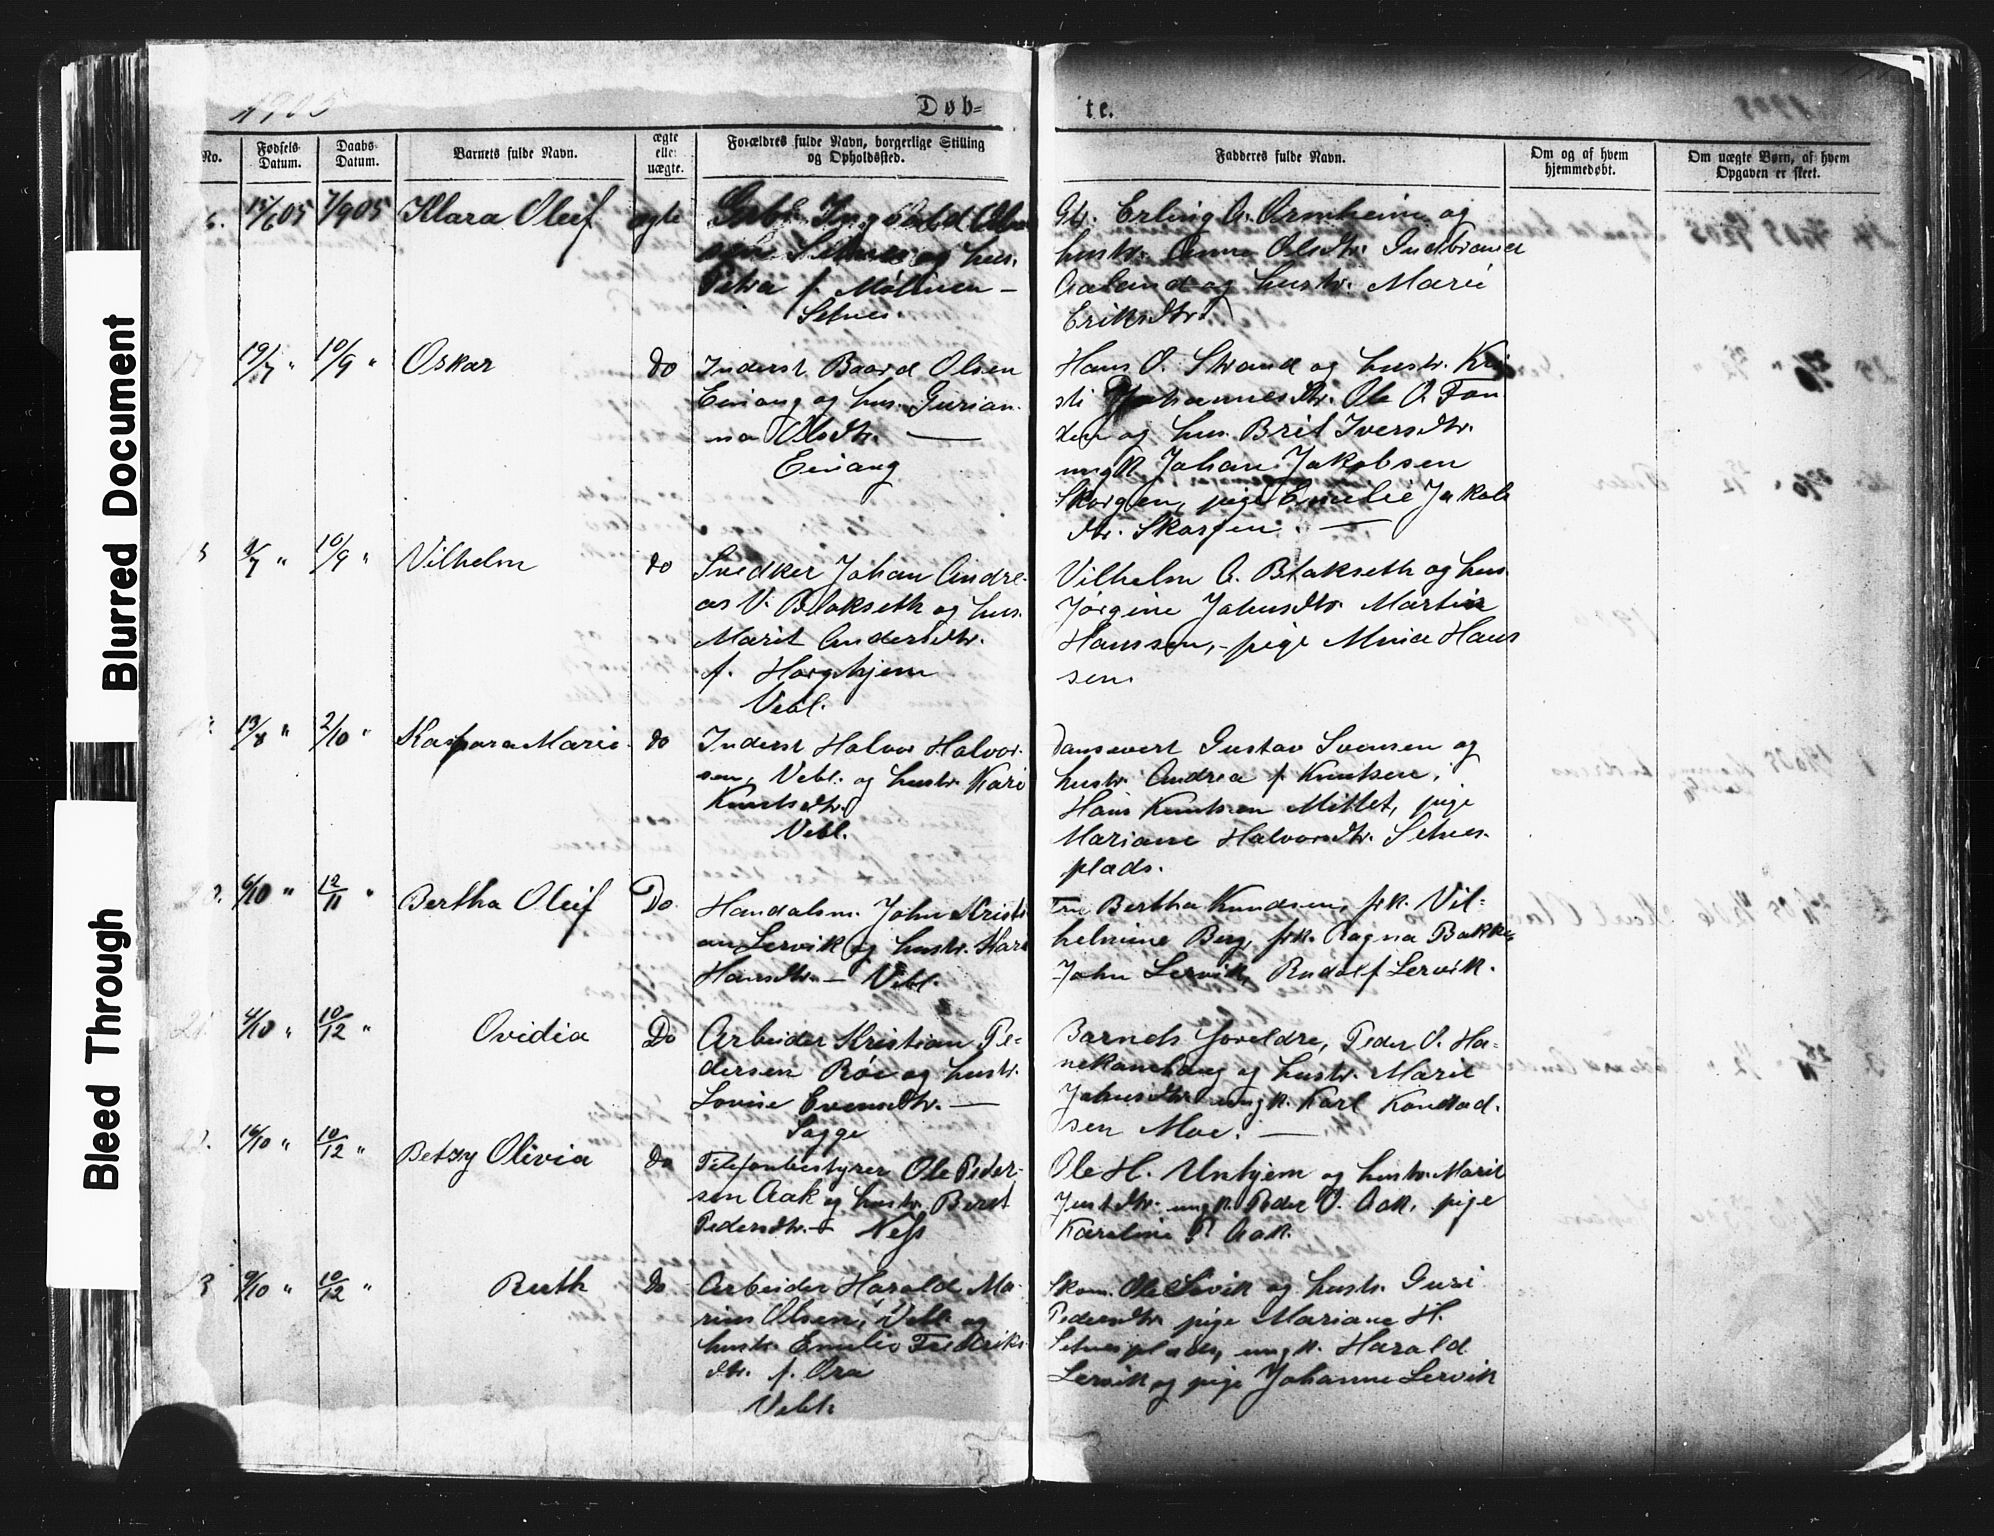 1905
Døb-
te.
No.
Fødsels-
Datum.
Daabs-
Datum.
Barnets fulde Navn.
ægte
eller
uægte.
Forældres fulde Navn, borgerlige Stilling
og Opholdssted.
Fadderes fulde Navn.
Om og af hvem
hjemmedøbt.
Om uægte Børn, af hvem
Opgaven er sket.
16. 15/6 05 7/9 05 Klara Oleif ægte
og hus.
Petra f. Møllmen —
Setnes.
Erling A. Ormheim og
hustr. Anna Olsdtr. Gudbrand
Aaland og hustr. Marie
Eriksdtr.
17 19/7 " 10/9 " Oskar do
Inderst Baard Olsen
Einang og hus. Gurian-
na Olsdtr. —
Einang
Hans O. Strand og hustr. Kri
sti Johannesdtr. Ole O. Ton
og hus. Brit Iversdtr.
ungk. Johan Jakobsen
Skorgen, pige Emelie Jakobs
dtr. Skorgen. —
18 9/7 " 10/9 " Vilhelm do
Snedker Johan Andre-
as V. Blakseth og hus.
Marit Andersdtr.
f. Horghjem
Vebl.
Vilhelm A. Blakseth og hus.
Jørgine Johnsdtr. Martin
Hanssen, pige Mina Hans
sen.
13/8 " 2/10 " Kaspara Marie do
Inderst Halvor Halvor-
sen, Vebl. og hustr. Kari
Knutsdtr.
Vebl.
Gustav Svensen og
hustr. Andrea f. Knutsen,
Hans Knutsen Mittet, pige
Mariane Halvorsdtr. Setnes-
plads.
20. 6/10 " 12/11 " Bertha Oleif Do.
Handelsm. John Kristi
an Lervik og hustr.
Hansdtr. — Vebl.
Fru Bertha Knudsen, frk. Vil-
helmine Berg, frk. Ragna Bakke,
John Lervik, Rudolf Lervik.
21. 4/10 " 10/12 " Ovidia Do
Arbeider Kristian Pe-
dersen Røe og hustr.
Lovise Evensdtr. —
Sogge
Barnets foreldre, Peder O. Ha-
nekamhaug og hustr. Marit
Johnsdtr. ungk. Karl Konrad-
sen Moe. —
22. 16/10 " 10/12 " Betzy Olivia do
Telefonbestyrer Ole Peder-
sen Aak og hustr. Berit
Pedersdtr. — Ness
Ole H. Unhjem og hustr. Marit
Justdtr. ungk. Peder O. Aak, pige
Karoline P. Aak.
23 9/10 " 10/12 " Ruth do
Arbeider Harald Ma-
rius Olsen, Vebl. og
hustr. Emilie Frederiks-
dtr. f. Ora
Vebl.
Skom. Ole Levik og hustr. Guri
Pedersdtr. pige Mariane H.
Setnesplads, ungk. Harald
Lervik og pige Johanne Lervik
Blurred Document
Bleed Through